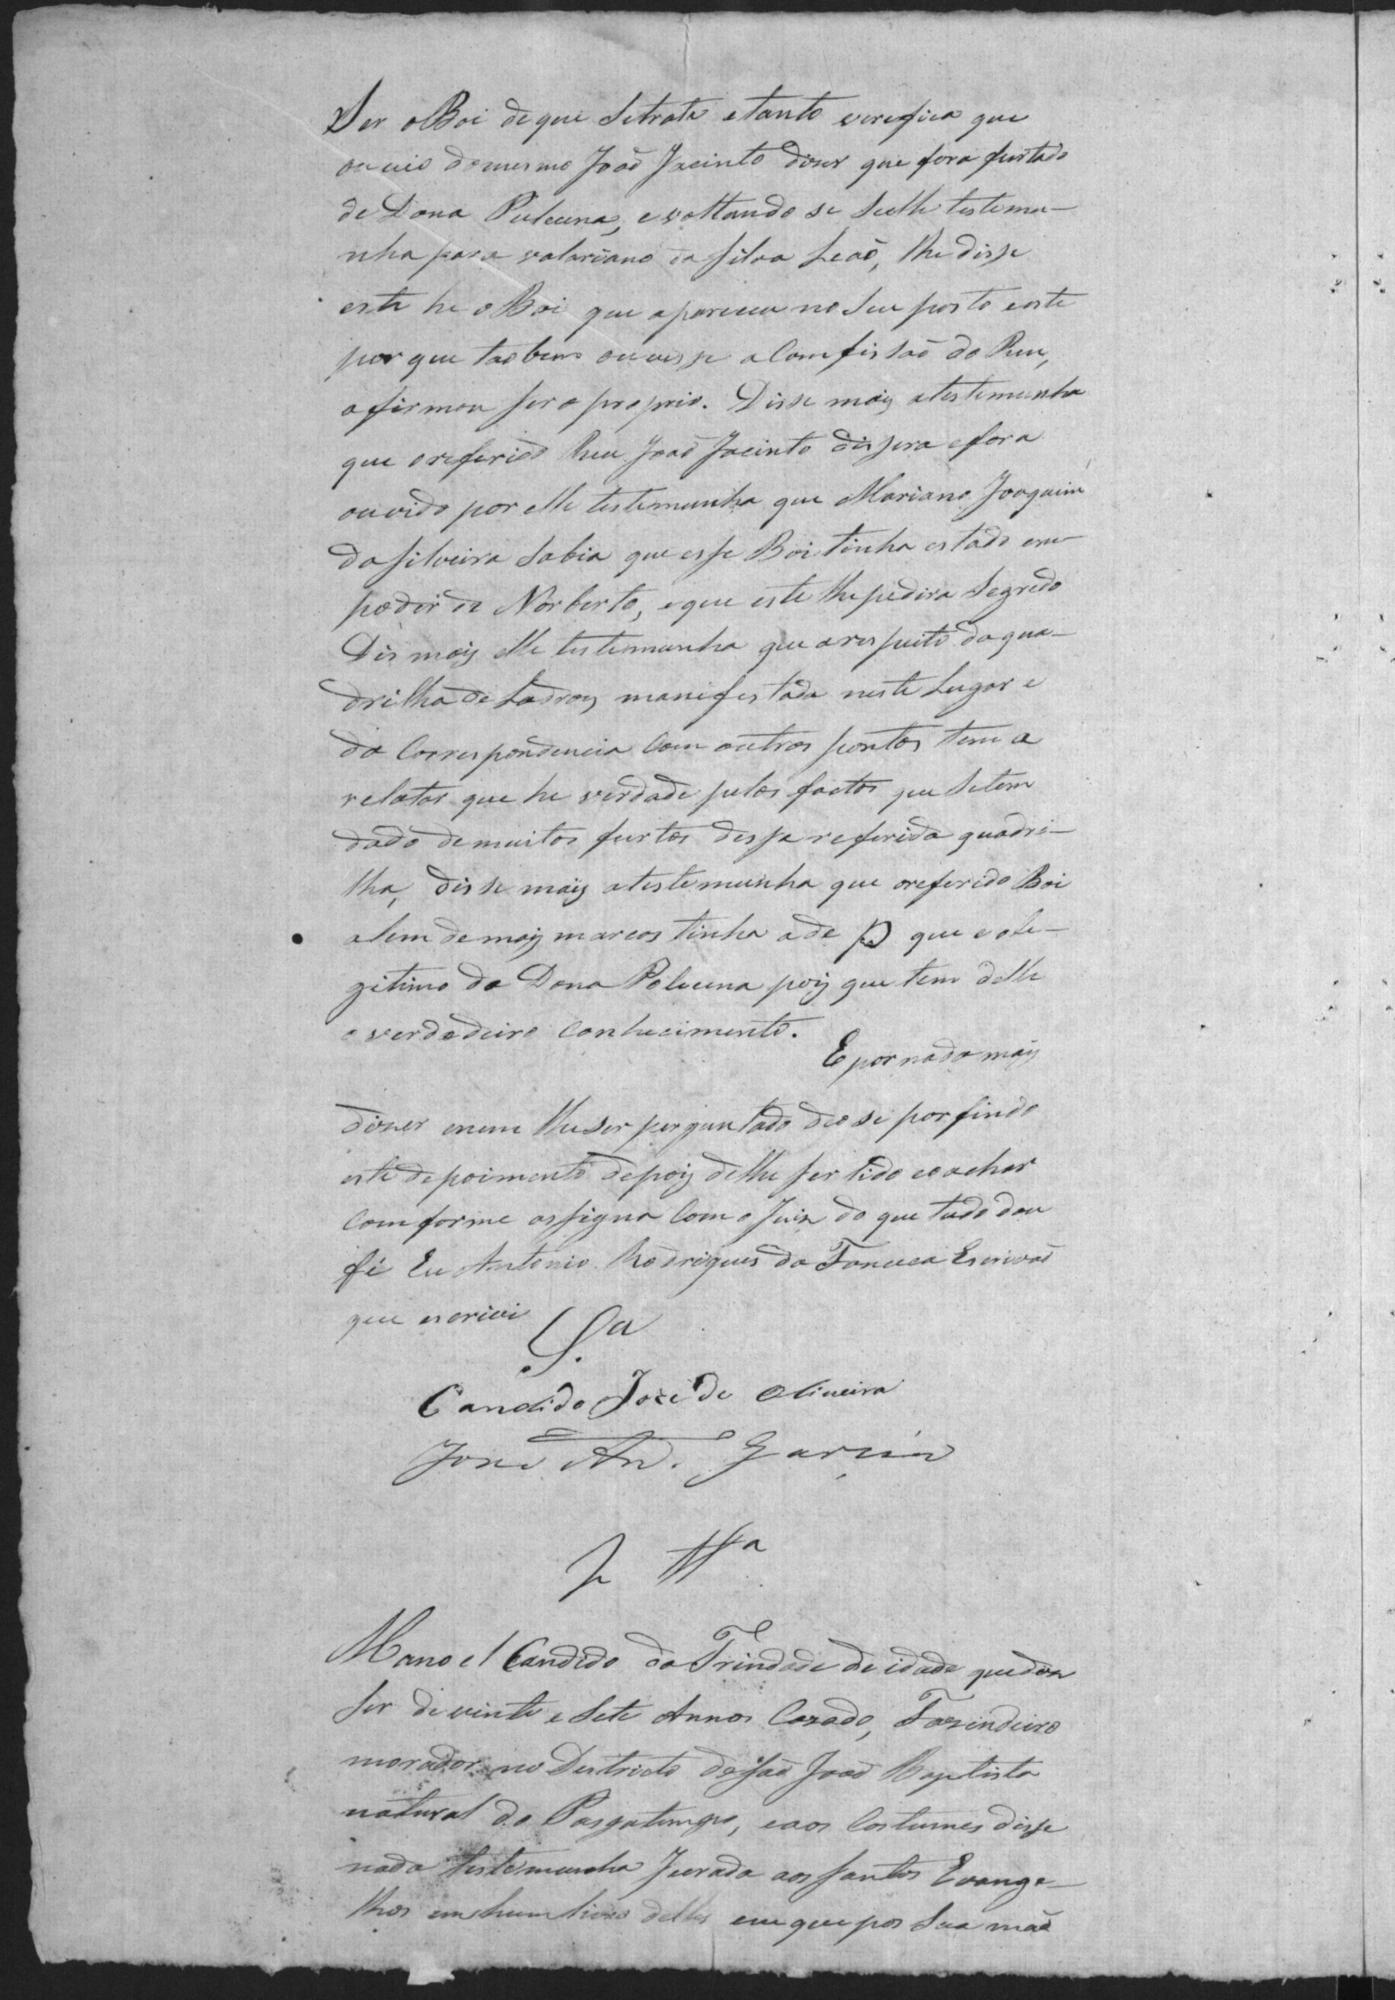 Ser o Boi de que se trata e tanto verefica que
ouvio do mesmo João Jacinto dizer que fora furtado
de Dona Policena, e voltando se selle testemu-
nha para valariano da Silva Leaõ, lhe disse
este he o Boi que apareceu no seu posto e este
por que taõbem ouvisse a Comfissaõ do Reu,
afirmou ser o proprio. Disse mais a testemunha
que o referido Reu Joaõ Jacinto dissera e fora
ouvido por elle testemunha que Mariano Joaquim
da Silveira Sabia que esse Boi tinha estado em
poder de Norberto, e que este lhe pedira Segredo
Dis mais elle testemunha que a respeito da qua-
drilha de Ladroiz manifestada neste Lugar e
da Correspondencia Com outros pontos tem a
relatar que he verdade pelos factos que se tem
dado de muitos furtos dessa referida quadri-
lha, disse mais a testemunha que o referido Boi
alem de mais marcas tinha a de P que e a le-
gitima da Dona Policena pois que tem delle
o verdadeiro Conhecimento.
E por nada mais
dizer e nem lhe ser perguntado deo se por findo
este depoimento depois de lhe ser lido e o achar
Comforme assigna Com o Juiz do que tudo dou
fé Eu Antonio Rodrigues da Fonceca Escrivaõ
que escrivi
Candido Jose de Oliveira
Jose An. Garcia
Manoel Candido da Trindade de idade que dice
ser de vinte e Sete Annos Cazado, Fazendeiro
morador no Destricto de Saõ Joaõ Baptista
natural do Passatempo, e aos Costumes disse
nada testemunha Jurada aos Santos Evange-
lhos em hum livro delles em que pos Sua maõ